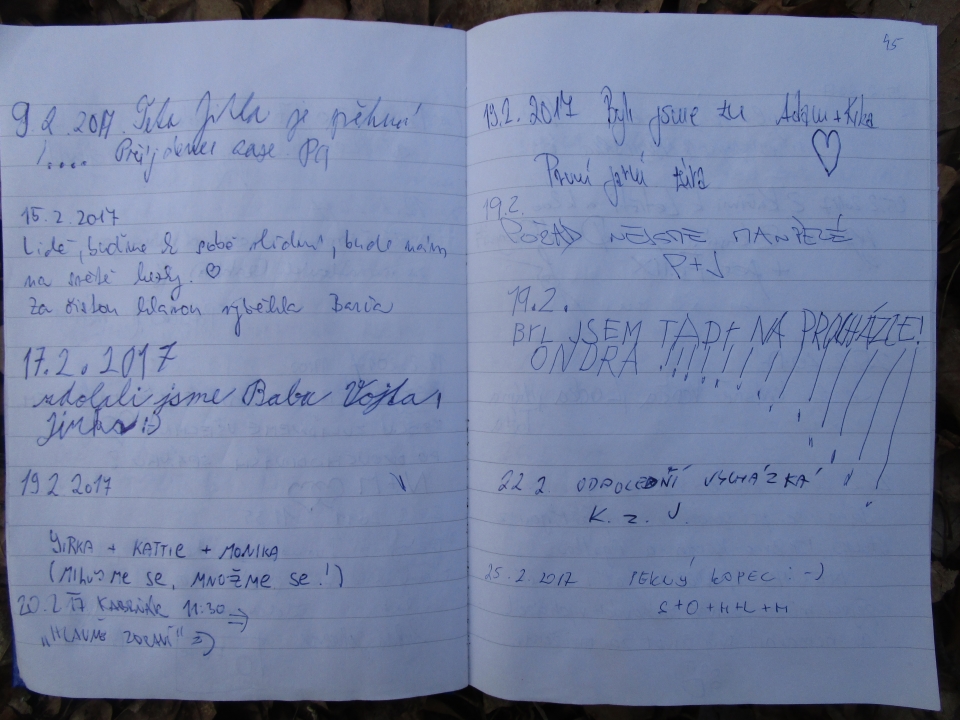 9 2. 2017. Jitka je pěkná
!.... Přijdeme zase. Pá
15.2.2017
Lidé, buďme k sobě slušní, bude nám
na světě hezky. ♡
Za čistou hlavou vyběhla Barča
17.2.2017
zdolali jsme Babu Vojta,
Jirka :)
19 2 2017
JIRKA + KATTIE + MONIKA
(MILUJME SE, MNOŽME SE!)
20.2 17 11:30 →
„HLAVNĚ ZDRAVÍ" =)
45
19.2. 2017 Byli jsme tu Adam + Kika
♡
První jarní
19.2.
POŘÁD NEJSME MANŽELÉ
P+J
19.2.
BYL JSEM TADY NA PROCHÁZCE!
ONDRA !!!!!!!!!!!!
22.2 ODPOLEDNÍ VYCHÁZKA
K. z. J.
25.2.2017 PEKNÝ KOPEC :-)
S+O+H+L+M